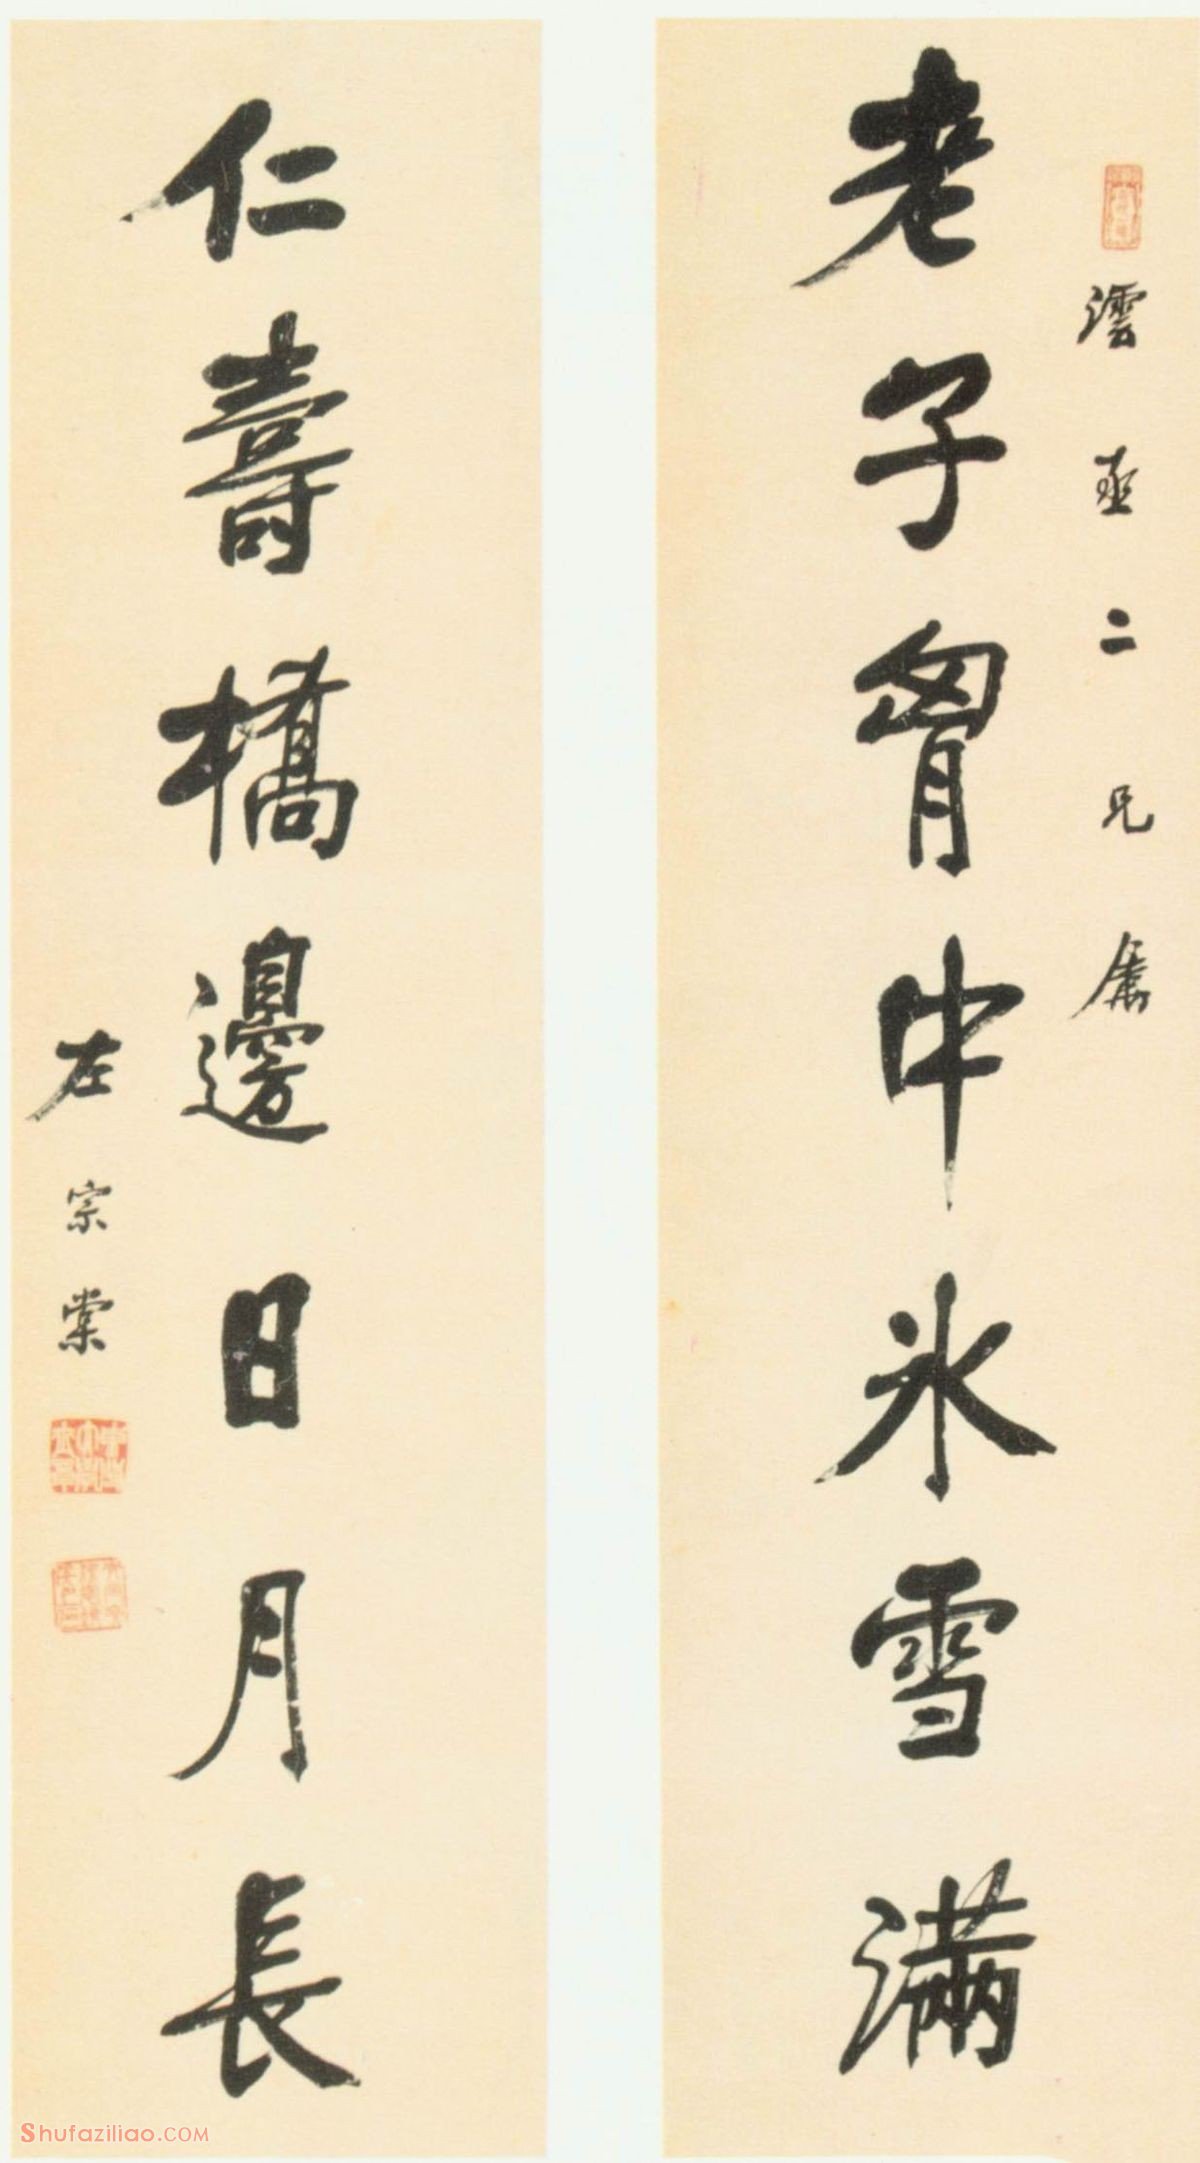 澐丞二兄屬
老子胷中氷雪滿
仁壽橋邊日月長
左宗棠
Shufaziliao.COM